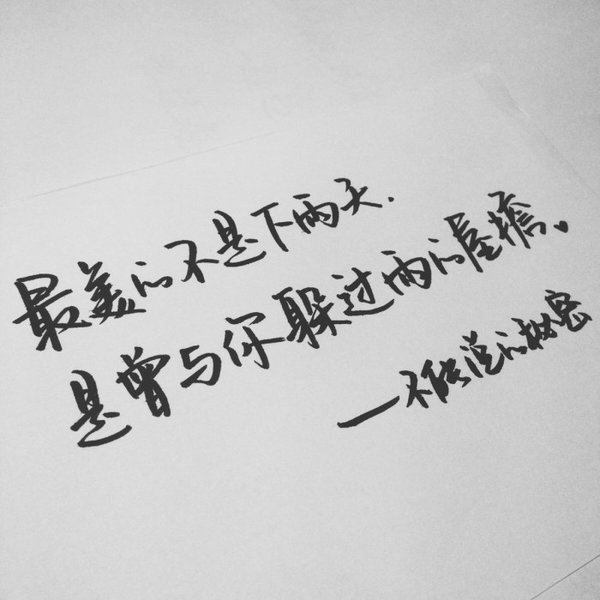 最美的不是下雨天.
是曾与你躲过雨的屋檐。
——不能说的秘密